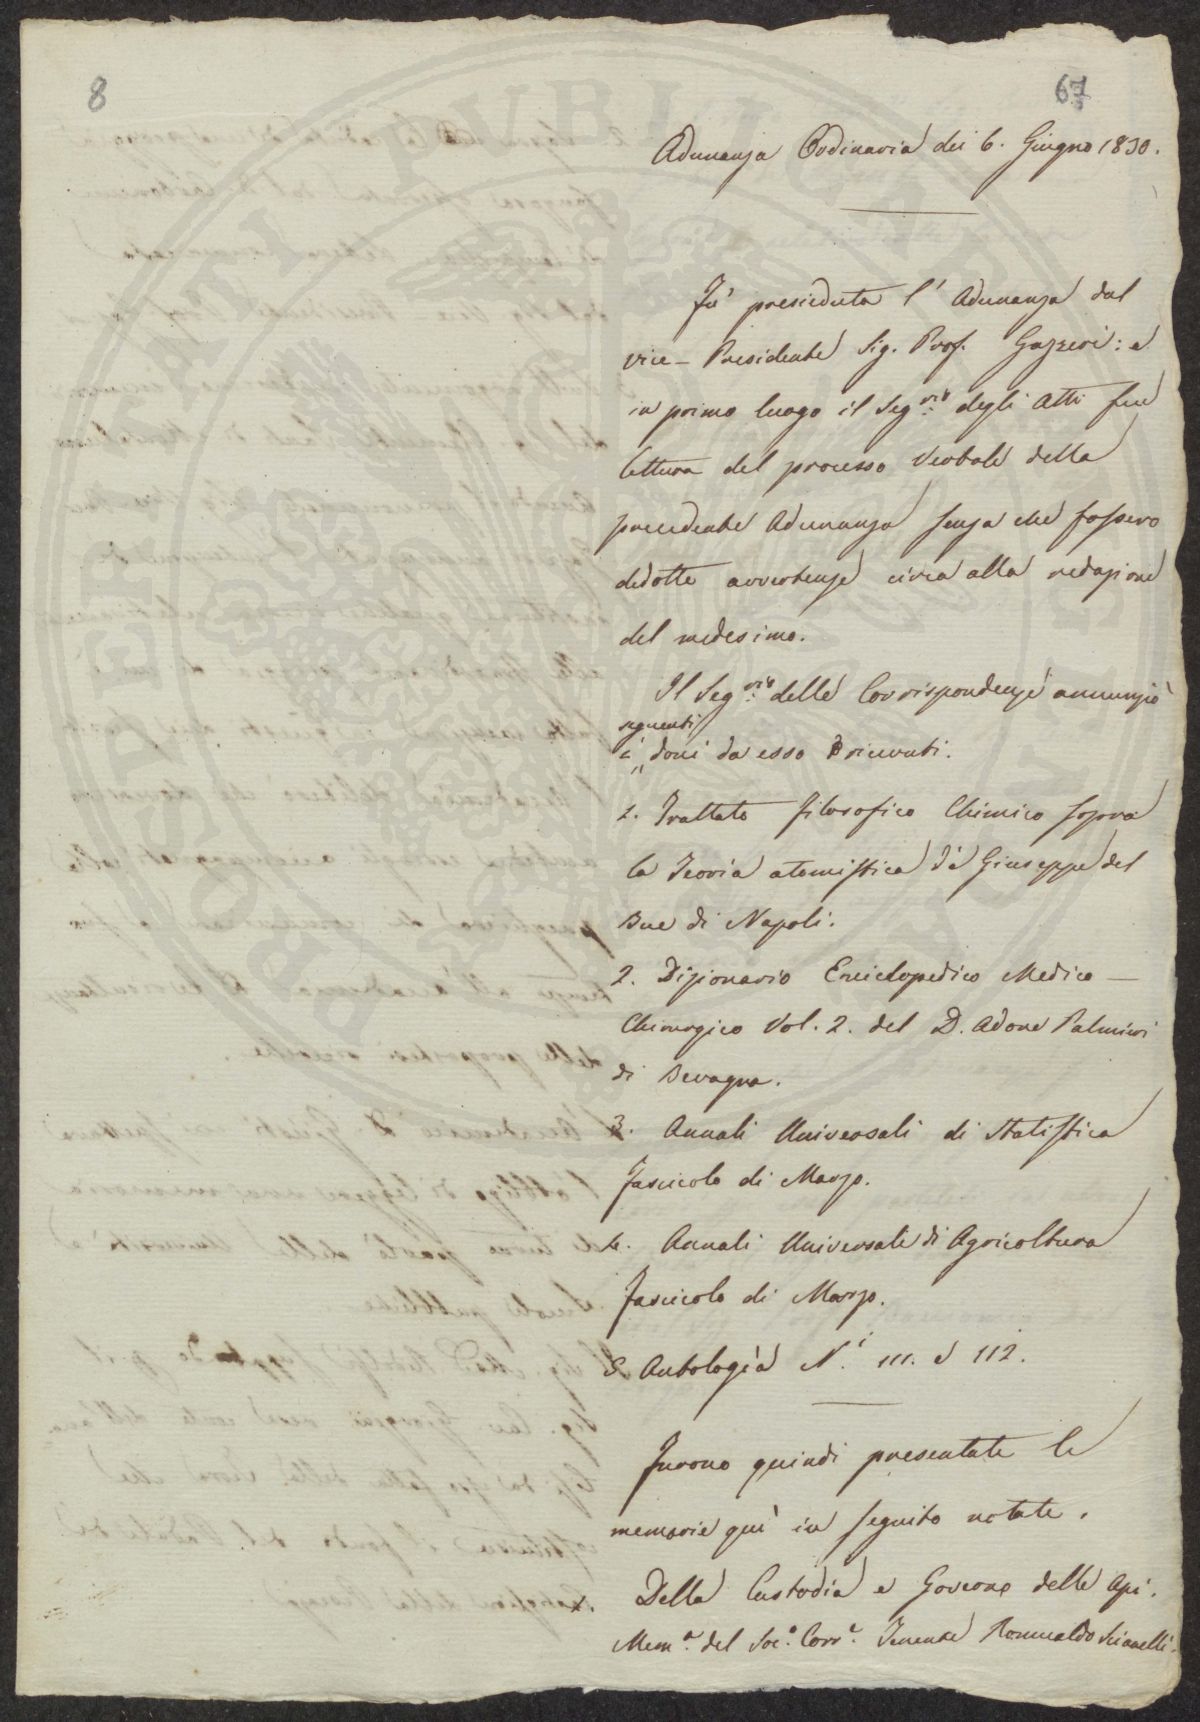 8
67
Adunanza Ordinaria dei 6. Giugno 1830.
Fu' presieduta l' Adunanza dal
vice-Presidente Sig. Prof. Gazzeri: e
in primo luogo il Seg.rio degli Atti fece
lettura del processo Verbale della
precedente Adunanza senza che fossero
dedotte avvertenze circa alla redazione
del medesimo.
Il Seg.rio delle Corrispondenze annunziò
seguenti
i doni da esso ricevuti.
1. Trattato filosofico Chimico sopra
la Teoria atomistica di Giuseppe del
Bue di Napoli.
2. Dizionario Enciclopedico Medico-
Chirurgico Vol. 2. del D. Adone Palmieri
di Bevagna.
3. Annali Universali di Statistica
fascicolo di Marzo.
4. Annali Universali di Agricoltura
Fascicolo di Marzo.
5. Antologia N.i 111. e 112.
Furono quindi presentate le
memorie qui in seguito notate.
Della Custodia e Governo delle Api.
Mem.a del Soc.o Corr.e Tenente Romualdo